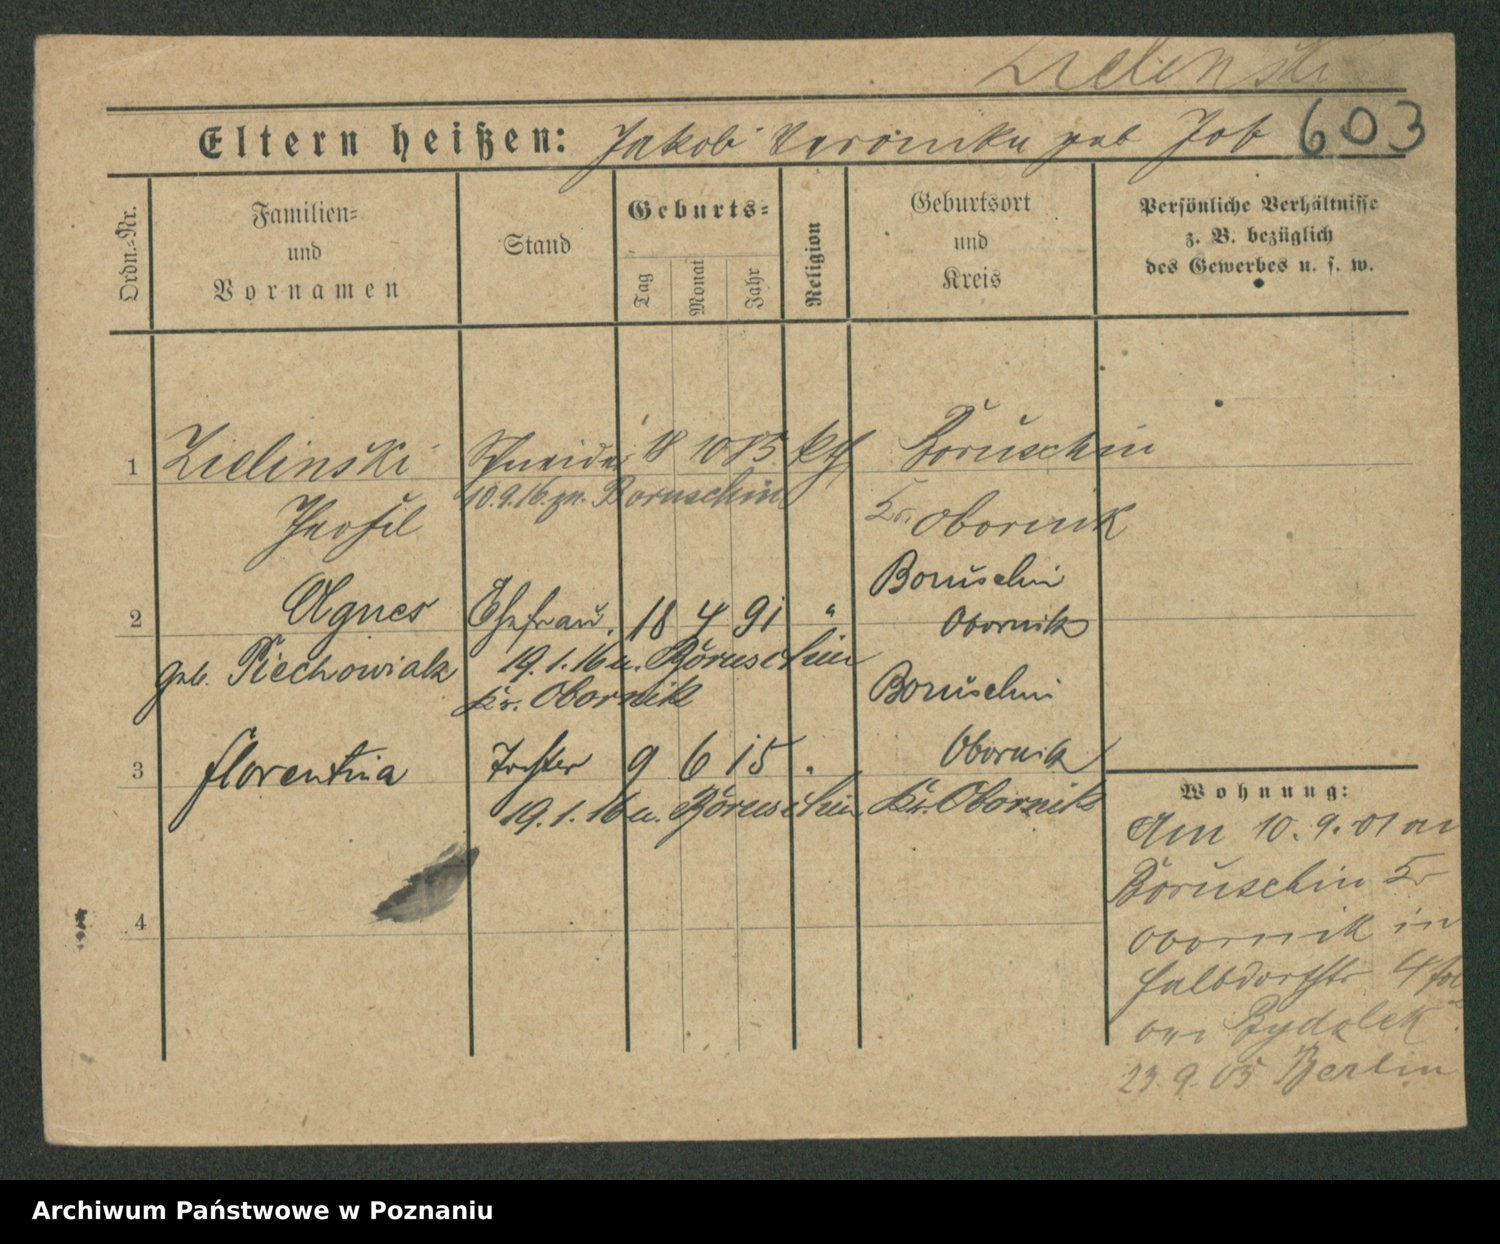 Zielinski
Eltern heißen: Jakob Veronika geb Job 603
Ordn.-Nr.
Familien- und Vornamen
Stand
Geburts-
Tag
Monat
Jahr
Religion
Geburtsort und Kreis
Persönliche Verhältnisse
z. B. bezüglich
des Gewerbes u. s. w.
1 Zielinski Schneider 18 10 83 kth Boruschin
10.9.16. zn. Boruschin
Teofil Kr. Obornik
Boruschin
2 Agnes Ehefrau. 18 4 91 " Obornik
geb. Piechowiak 19.1.16 n. Boruschin
Kr. Obornik Boruschin
3 Florentina Tochter 9 6 15 " Obornik
19.1.16 n. Boruschin Kr. Obornik
4
Wohnung:
Am 10.9.01 an
Boruschin Kr
Obornik in
4
Rydzlek
23.9.05 Berlin
Archiwum Państwowe w Poznaniu